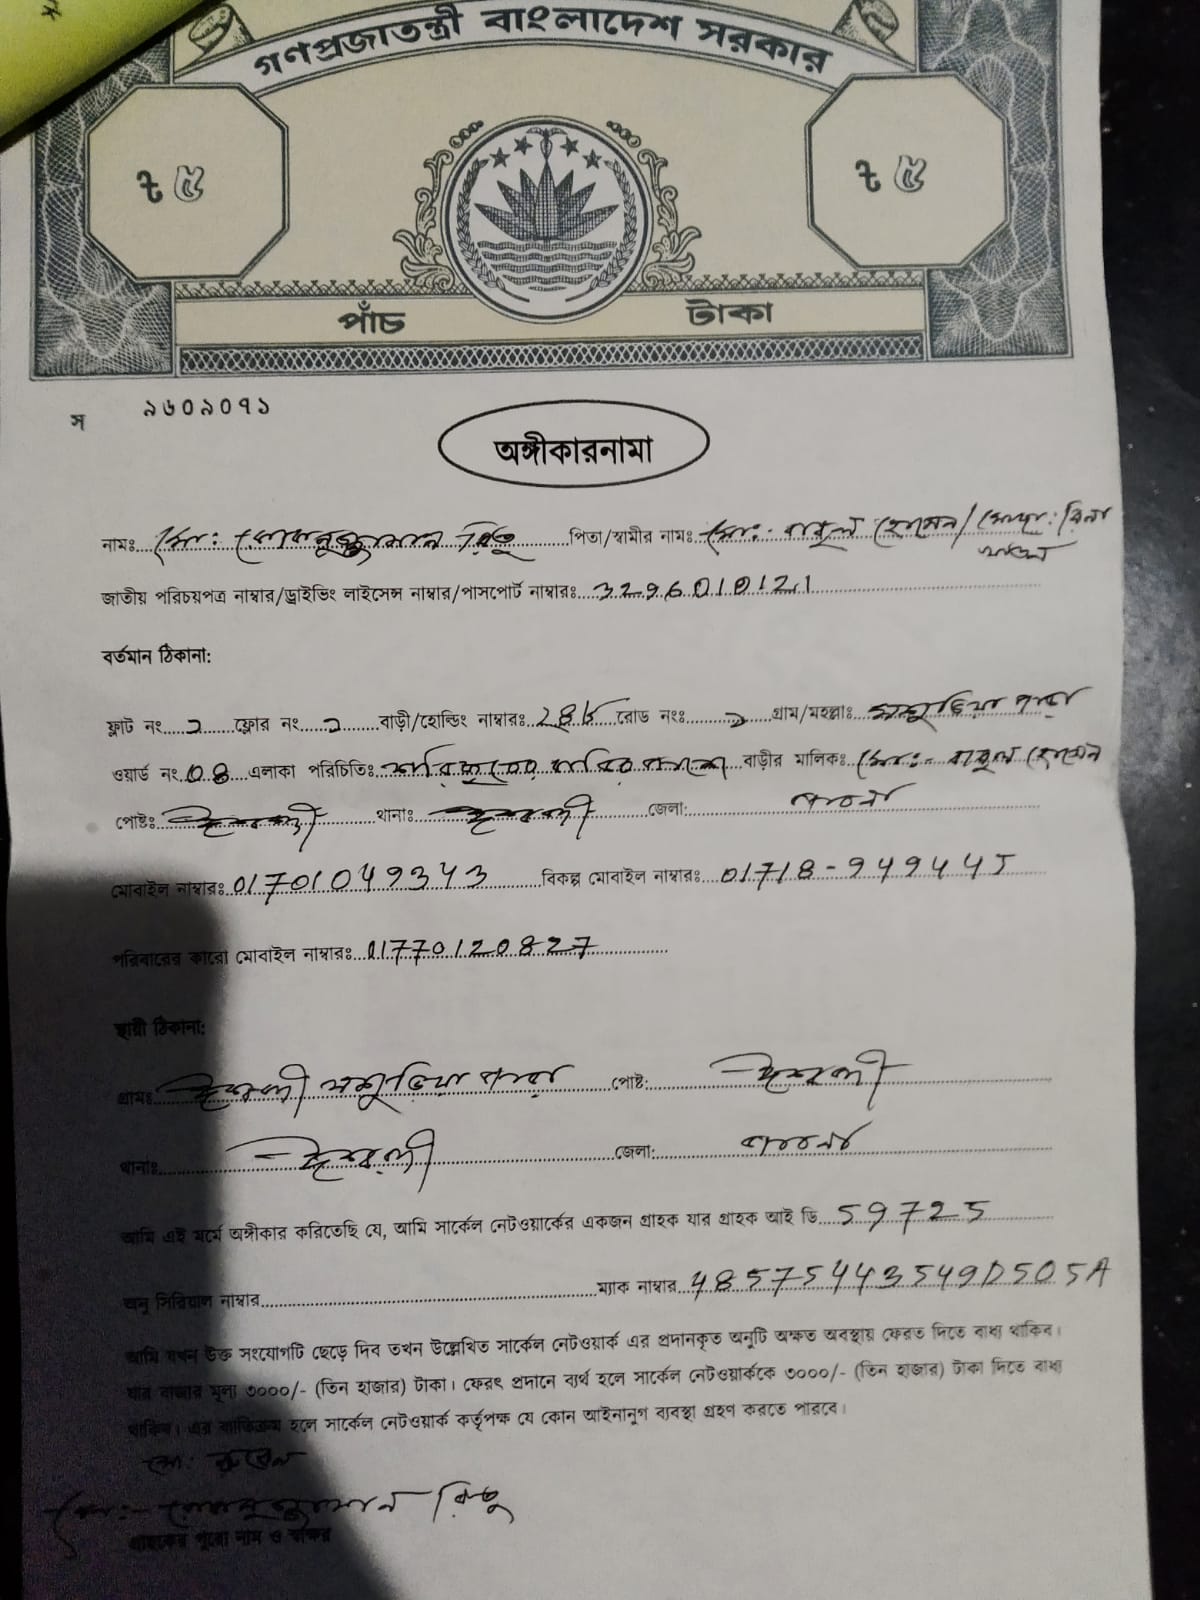 গণপ্রজাতন্ত্রী বাংলাদেশ সরকার
৳ ৫ ৳ ৫
পাঁচ টাকা
স ৯৬০৯০৭১
অঙ্গীকারনামা
নামঃ মোঃ রিতু পিতা/স্বামীর নামঃ মোঃ- বাবুল হোসেন/মোছাঃ রিনা
জাতীয় পরিচয়পত্র নাম্বার/ড্রাইভিং লাইসেন্স নাম্বার/পাসপোর্ট নাম্বারঃ 3296010121
বর্তমান ঠিকানা:
ফ্লাট নং ফ্লোর নং বাড়ী/হোল্ডিং নাম্বারঃ রোড নংঃ গ্রাম/মহল্লাঃ পাড়া
ওয়ার্ড নং 08 এলাকা পরিচিতিঃ বাড়ীর মালিকঃ মোঃ- বাবুল হোসেন
পোষ্টঃ ঈশ্বরদী থানাঃ ঈশ্বরদী জেলা: পাবনা
মোবাইল নাম্বারঃ 01701049343 বিকল্প মোবাইল নাম্বারঃ 01718-949445
পরিবারের কারো মোবাইল নাম্বারঃ 01770120827
স্থায়ী ঠিকানা:
গ্রামঃ ঈশ্বরদী পাড়া পোষ্ট: ঈশ্বরদী
থানাঃ ঈশ্বরদী জেলা: পাবনা
আমি এই মর্মে অঙ্গীকার করিতেছি যে, আমি সার্কেল নেটওয়ার্কের একজন গ্রাহক যার গ্রাহক আই ডি 59725
অনু সিরিয়াল নাম্বার ম্যাক নাম্বার 48575443549D505A
আমি যখন উক্ত সংযোগটি ছেড়ে দিব তখন উল্লেখিত সার্কেল নেটওয়ার্ক এর প্রদানকৃত অনুটি অক্ষত অবস্থায় ফেরত দিতে বাধ্য থাকিব।
যার বাজার মূল্য ৩০০০/- (তিন হাজার) টাকা। ফেরৎ প্রদানে ব্যর্থ হলে সার্কেল নেটওয়ার্ককে ৩০০০/- (তিন হাজার) টাকা দিতে বাধ্য
থাকিব। এর ব্যতিক্রম হলে সার্কেল নেটওয়ার্ক কর্তৃপক্ষ যে কোন আইনানুগ ব্যবস্থা গ্রহণ করতে পারবে।
মোঃ
মোঃ-
গ্রাহকের পুরো নাম ও স্বাক্ষর